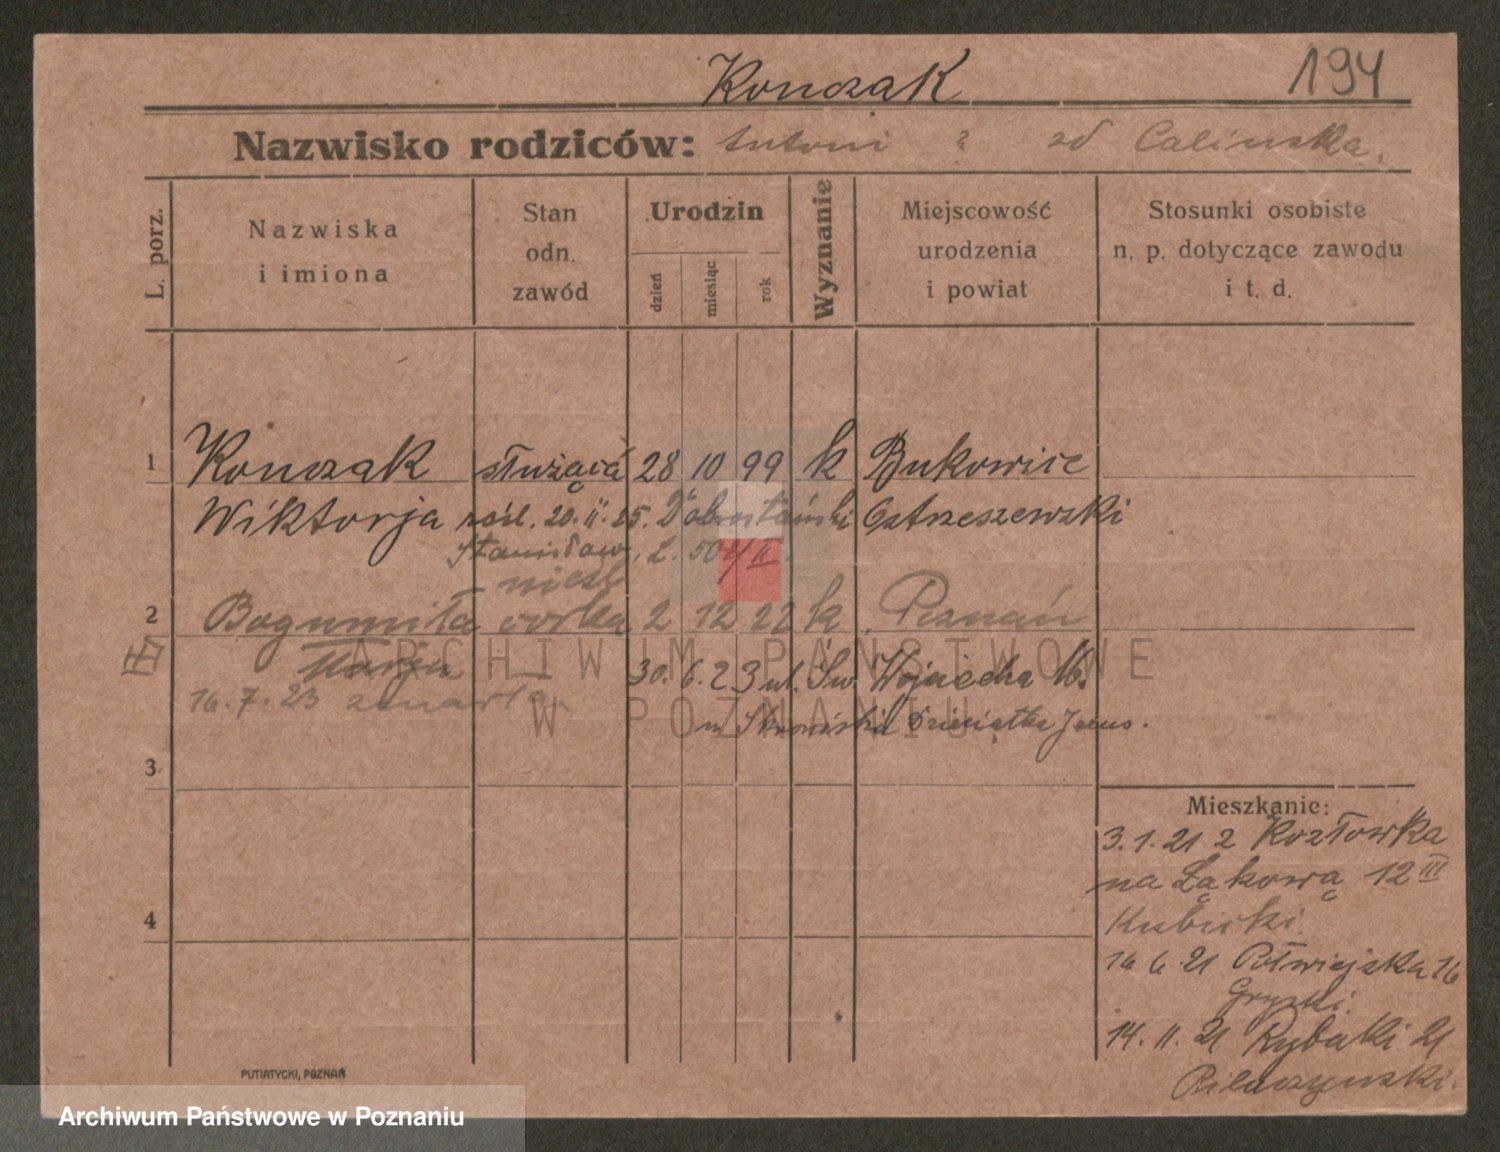 Konczak 194
Nazwisko rodziców: Antoni ? zd Calinska.
L. porz.
Nazwiska i imiona
Stan odn. zawód
Urodzin
dzień
miesiąc
rok
Wyznanie
Miejscowość urodzenia i powiat
Stosunki osobiste n. p. dotyczące zawodu i t. d.
1 Konczak służąca 28 10 99 k Bukowice
Wiktorja zaśl. 20. II. 25. Ostrzeszewski
Stanisław, L. 50
nieśl
2 Bogumiła córka 2 12 22 k Poznań
Marja 30. 6. 23 ul. Św. Wojciecha
16. 7. 23 zmarła.
Dzieciątka Jezus.
3
4
Mieszkanie:
3. 1. 21 z Kozłowka
na Łąkową 12 III
Kubicki
16 6 21 Półwiejska 16
Gryzki.
14. 11. 21 Rybaki 21
PUTIATYCKI, POZNAŃ
ARCHIWUM PAŃSTWOWE
W POZNANIU
Archiwum Państwowe w Poznaniu